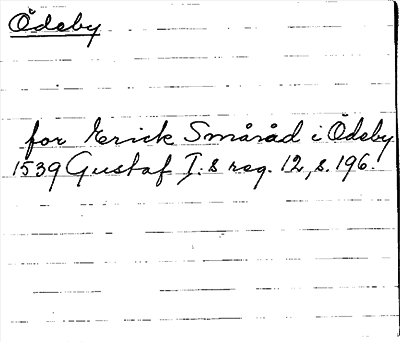 Ödeby
for Erick Smäråd i Ödeby
1539 Gustaf I:s reg. 12, s. 196.